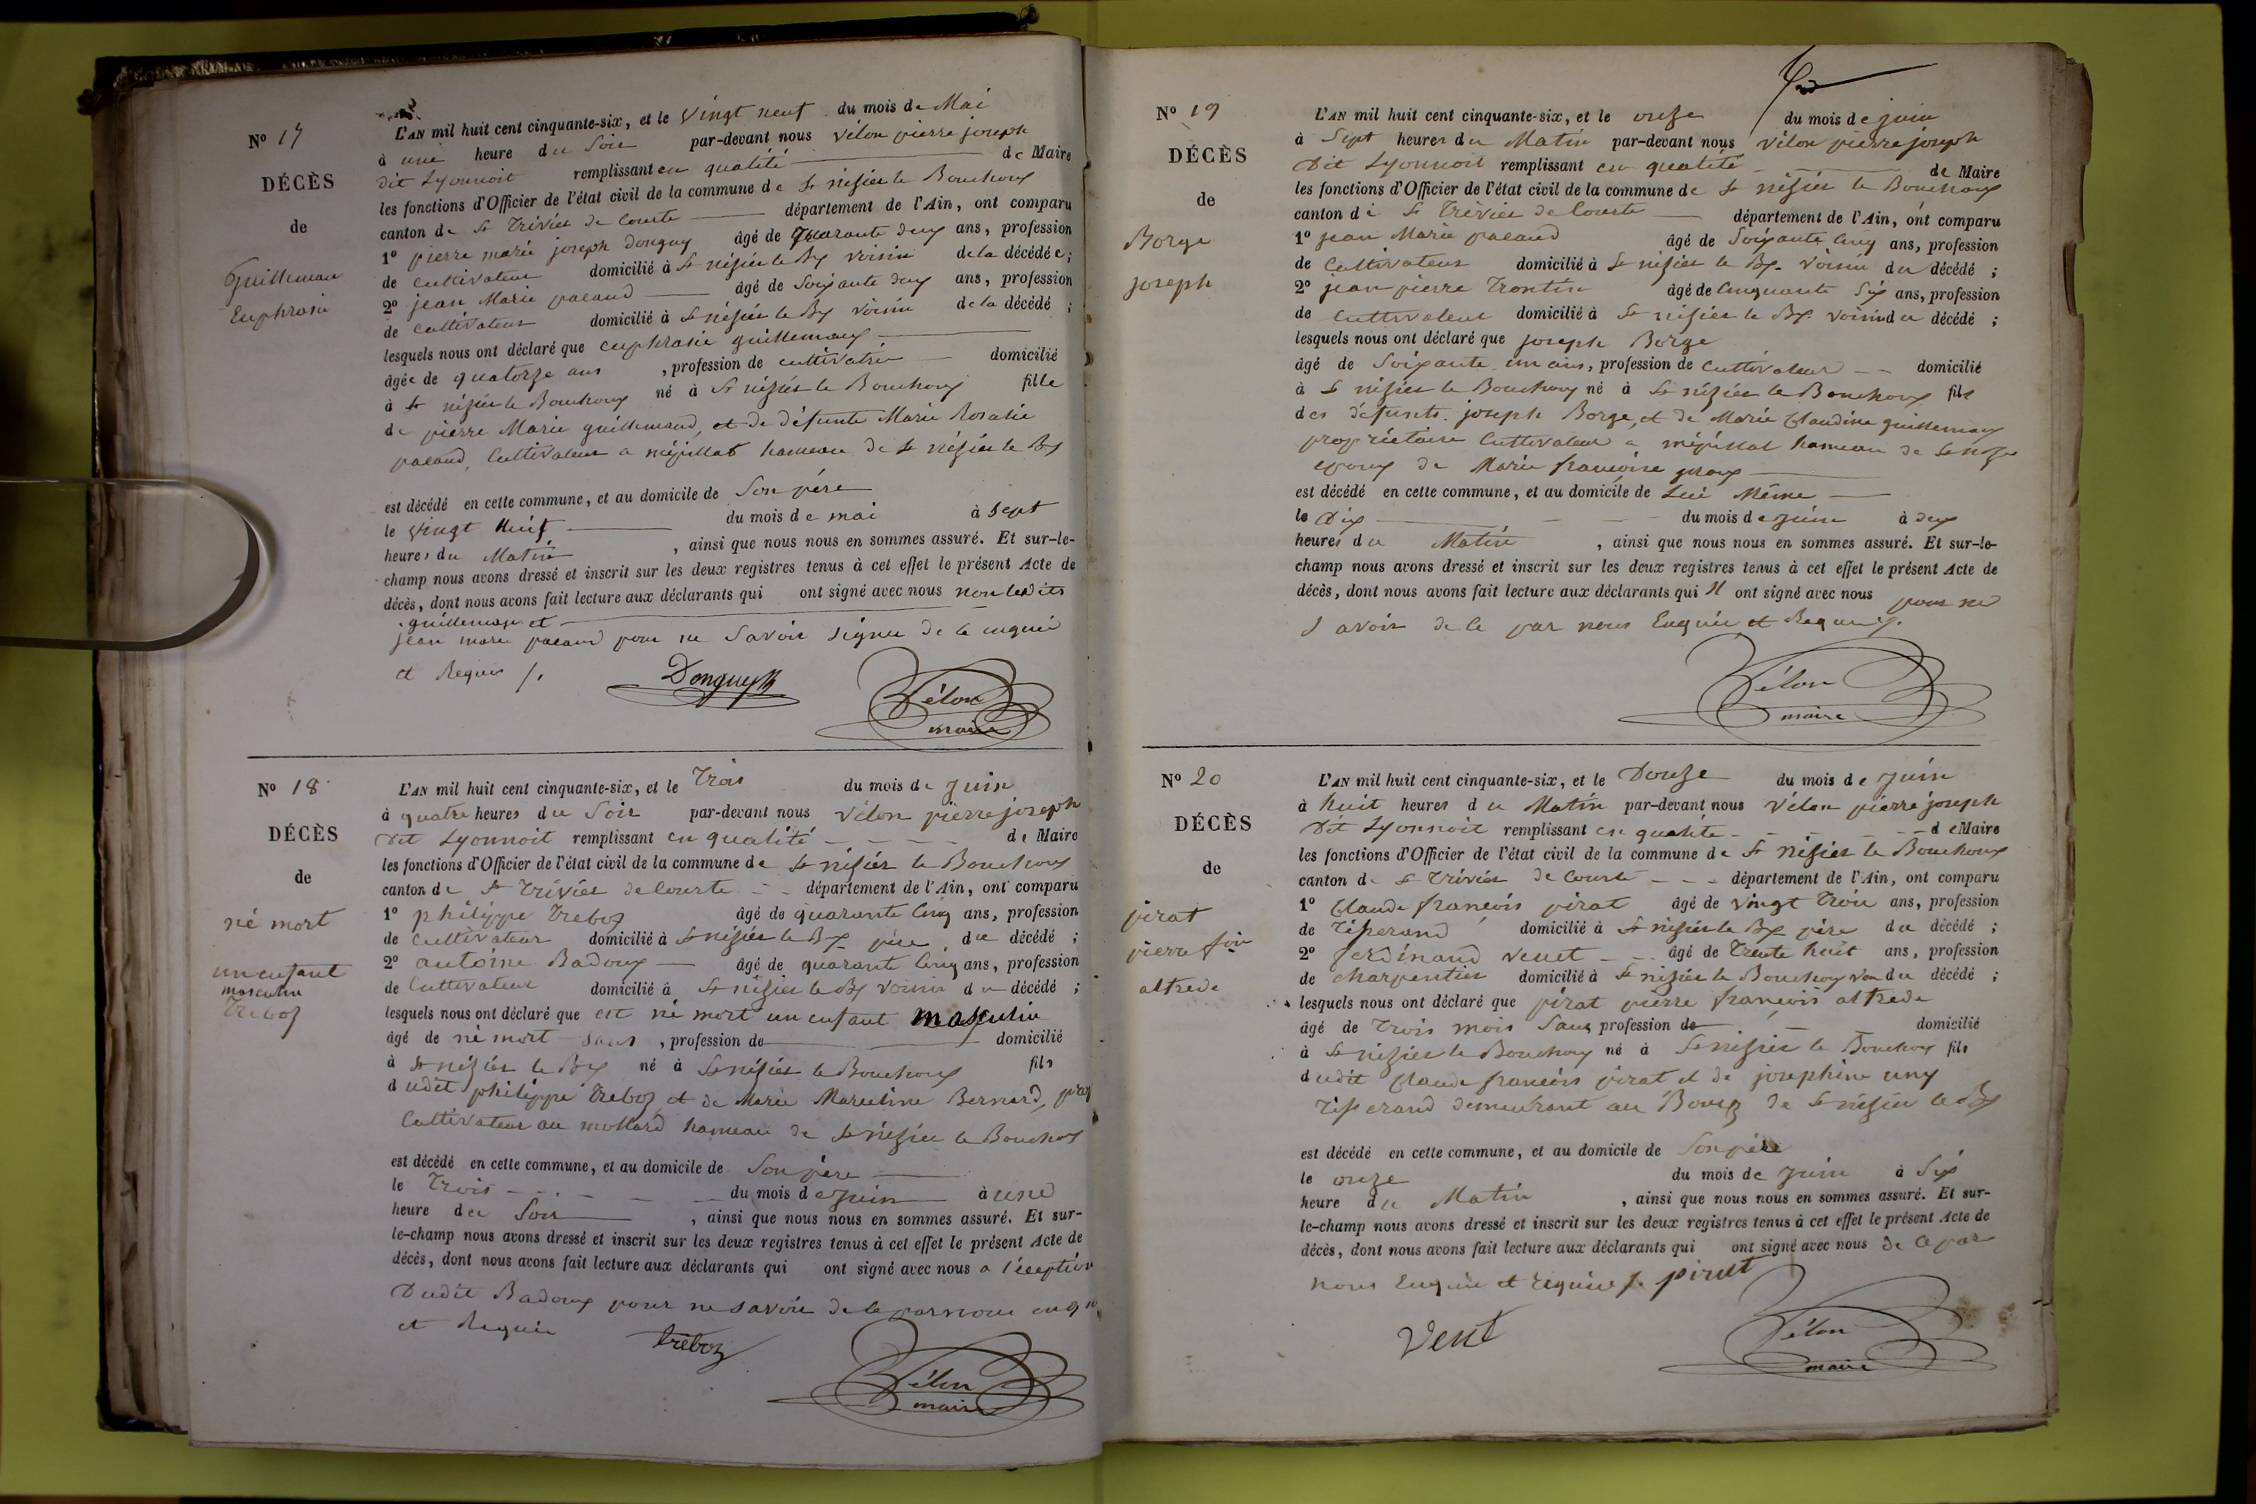 Nº 17
DÉCÈS
de
Guillemaud
Euphrasie
L'AN mil huit cent cinquante-six, et le vingt neuf du mois de Mai
à une heure du Soir par-devant nous Vélon pierre joseph
dit Lyonnoit remplissant en qualité de Maire
les fonctions d'Officier de l'état civil de la commune de St nizier le Bouchoux
canton de St Trivier de Courte département de l'Ain, ont comparu
1º pierre marie joseph donguy âgé de quarante deux ans, profession
de cultivateur domicilié à St nizier le Bx voisin de la décédée ;
2º jean Marie pacaud âgé de Soixante deux ans, profession
de cultivateur domicilié à St nizier le Bx voisin de la décédé ;
lesquels nous ont déclaré que euphrasie guillemaux
âgée de quatorze ans , profession de cultivatrice domicilié
à St nizier le Bouchoux né à St nizier le Bouchoux fille
de pierre Marie guillemaud, et de défunte Marie Rosalie
pacaud, Cultivateur a mépillat hameau de St nizier le Bx
est décédé en cette commune, et au domicile de Son père
le vingt Huit du mois de mai à Sept
heures du Matin , ainsi que nous nous en sommes assuré. Et sur-le-
champ nous avons dressé et inscrit sur les deux registres tenus à cet effet le présent Acte de
décès, dont nous avons fait lecture aux déclarants qui ont signé avec nous non ledits
guillemaux et
jean marie pacaud pour ne Savoir signer de ce enquis
et Requis /.
Donguy
Vélon
maire
Nº 18
DÉCÈS
de
né mort
un enfant
masculin
Treboz
L'AN mil huit cent cinquante-six, et le Trois du mois de juin
à quatre heures du Soir par-devant nous Vélon pierre joseph
Dit Lyonnoit remplissant en qualité de Maire
les fonctions d'Officier de l'état civil de la commune de St nizier le Bouchoux
canton de St Trivier de Courte département de l'Ain, ont comparu
1º philippe Treboz âgé de quarante Cinq ans, profession
de Cultivateur domicilié à St nizier le Bx père du décédé ;
2º antoine Badoux âgé de quarante Cinq ans, profession
de Cultivateur domicilié à St nizier le Bx voisin du décédé ;
lesquels nous ont déclaré que est né mort un enfant masculin
âgé de né mort Sans , profession de domicilié
à St nizier le Bx né à St nizier le Bouchoux fils
dudit philippe Treboz et de Marie Marceline Bernard,
Cultivateur au mollard hameau de St nizier le Bouchoux
est décédé en cette commune, et au domicile de Son père
le Trois du mois de juin à une
heure du Soir , ainsi que nous nous en sommes assuré. Et sur-
le-champ nous avons dressé et inscrit sur les deux registres tenus à cet effet le présent Acte de
décès, dont nous avons fait lecture aux déclarants qui ont signé avec nous a l'éception
Dudit Badoux pour ne savoir de ce par nous
et Requis
treboz
Vélon
maire
Nº 19
DÉCÈS
de
Borge
joseph
L'AN mil huit cent cinquante-six, et le onze du mois de juin
à Sept heures du Matin par-devant nous Vélon pierre joseph
Dit Lyonnoit remplissant en qualité de Maire
les fonctions d'Officier de l'état civil de la commune de St nizier le Bouchoux
canton de St Trivier de Courte département de l'Ain, ont comparu
1º jean Marie pacaud âgé de Soixante Cinq ans, profession
de Cultivateur domicilié à St nizier le Bx voisin du décédé ;
2º jean pierre Trontin âgé de Cinquante Six ans, profession
de Cultivateur domicilié à St nizier le Bx voisin du décédé ;
lesquels nous ont déclaré que joseph Borge
âgé de Soixante un ans, profession de Cultivateur domicilié
à St nizier le Bouchoux né à St nizier le Bouchoux fils
des défunts joseph Borge, et de Marie Claudine guillemaux
propriétaire Cultivateur a mépillat hameau de
époux de Marie françoise
est décédé en cette commune, et au domicile de Lui Même
le Dix du mois de juin à deux
heures du Matin , ainsi que nous nous en sommes assuré. Et sur-le-
champ nous avons dressé et inscrit sur les deux registres tenus à cet effet le présent Acte de
décès, dont nous avons fait lecture aux déclarants qui N ont signé avec nous pour ne
Savoir de ce par nous Enquis et Requis /.
Vélon
maire
Nº 20
DÉCÈS
de
pirat
pierre fois
alfrede
L'AN mil huit cent cinquante-six, et le Douze du mois de juin
à huit heures du Matin par-devant nous Vélon pierre joseph
Dit Lyonnoit remplissant en qualité de Maire
les fonctions d'Officier de l'état civil de la commune de St Nizier le Bouchoux
canton de St Trivier de Courte département de l'Ain, ont comparu
1º Claude françois pirat âgé de vingt Trois ans, profession
de Tisserand domicilié à St nizier le Bx père du décédé ;
2º ferdinand Venet âgé de Trente huit ans, profession
de charpentier domicilié à St nizier le Bouchoux du décédé ;
lesquels nous ont déclaré que pirat pierre françois alfrede
âgé de Trois mois Sans profession de domicilié
à St nizier le Bouchoux né à St nizier le Bouchoux fils
dudit Claude françois pirat et de josephine uny
Tisserand demeurant au Bourg de St nizier le Bx
est décédé en cette commune, et au domicile de Son père
le onze du mois de juin à Six
heure du Matin , ainsi que nous nous en sommes assuré. Et sur-
le-champ nous avons dressé et inscrit sur les deux registres tenus à cet effet le présent Acte de
décès, dont nous avons fait lecture aux déclarants qui ont signé avec nous de ce par
nous Enquis et requis /. pirat
Venet
Vélon
maire